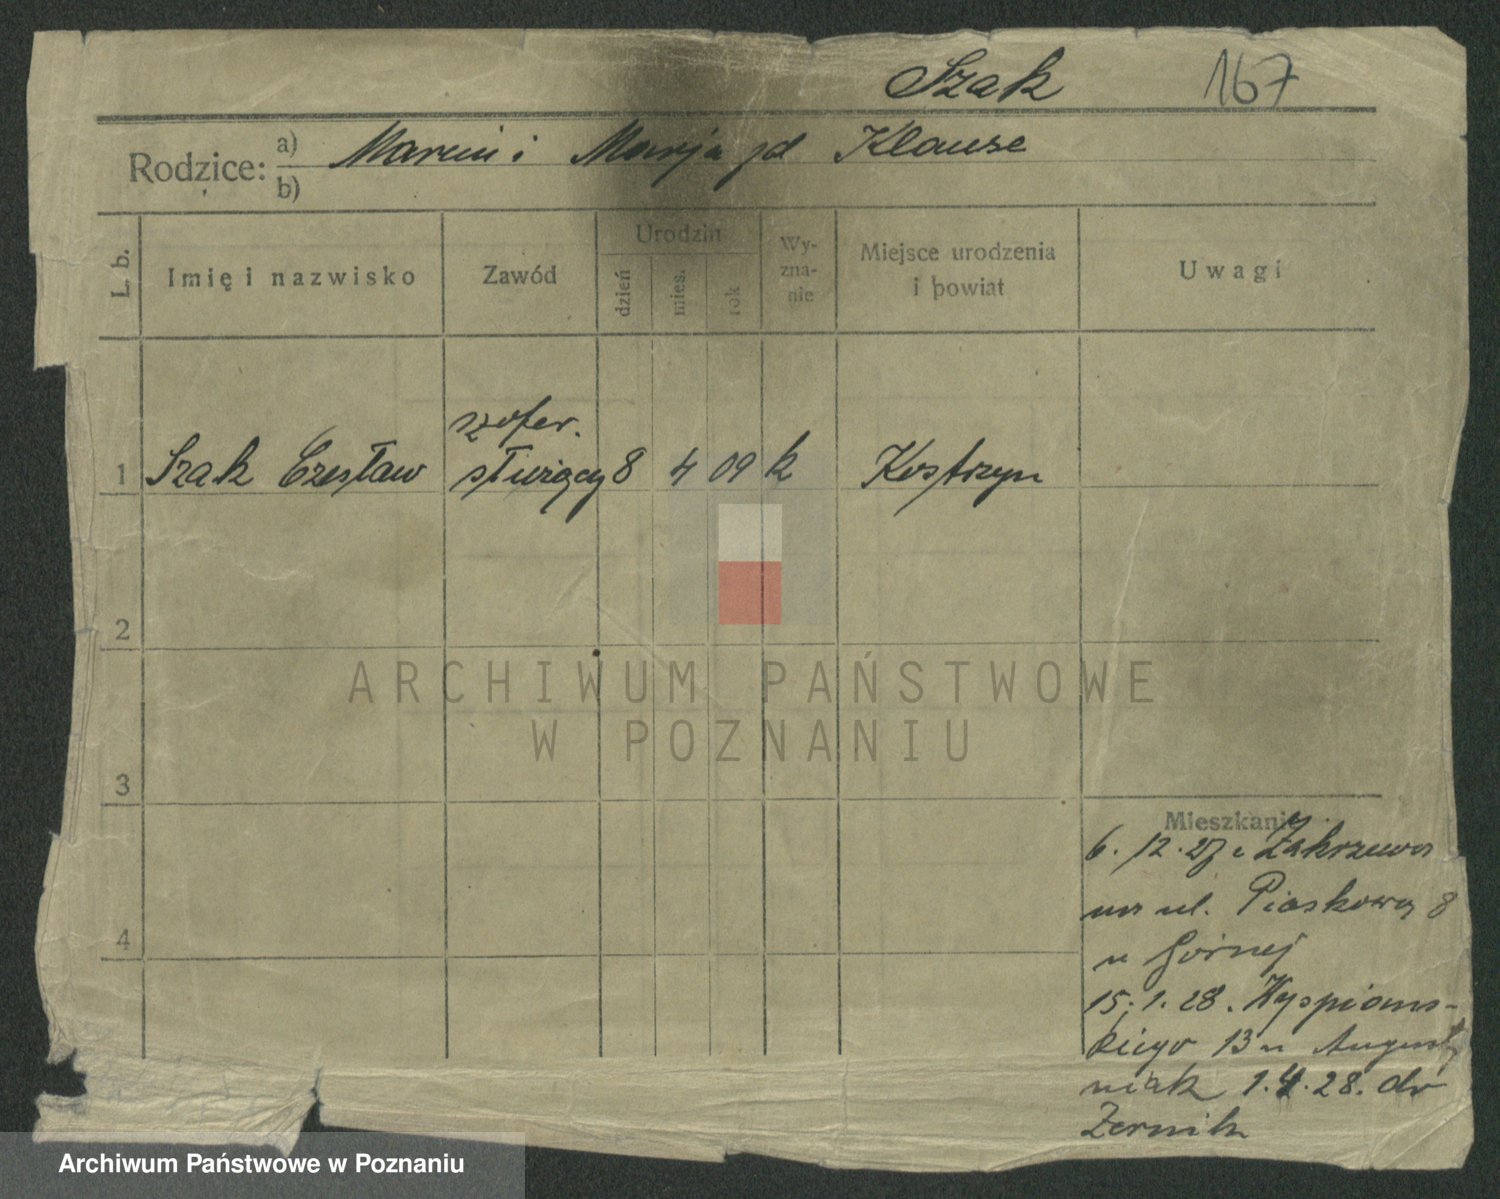 Szak 167
Rodzice: a) Marcin i Marja zd Klause
b)
L. b. Imię i nazwisko Zawód Urodzin dzień mies. rok Wy-zna-nie Miejsce urodzenia i powiat Uwagi
szofer.
1 Szak Czesław służący 8 4 09 k Kostrzyn
2
3
4
Mieszkanie
6. 12. 27 z Zakrzewa
na ul. Piaskową 8
u Górnej
15. 1. 28. Wyspiańs-
kiego 13 u Augusty
niak 1. 4. 28. do
Żernik
ARCHIWUM PAŃSTWOWE
W POZNANIU
Archiwum Państwowe w Poznaniu